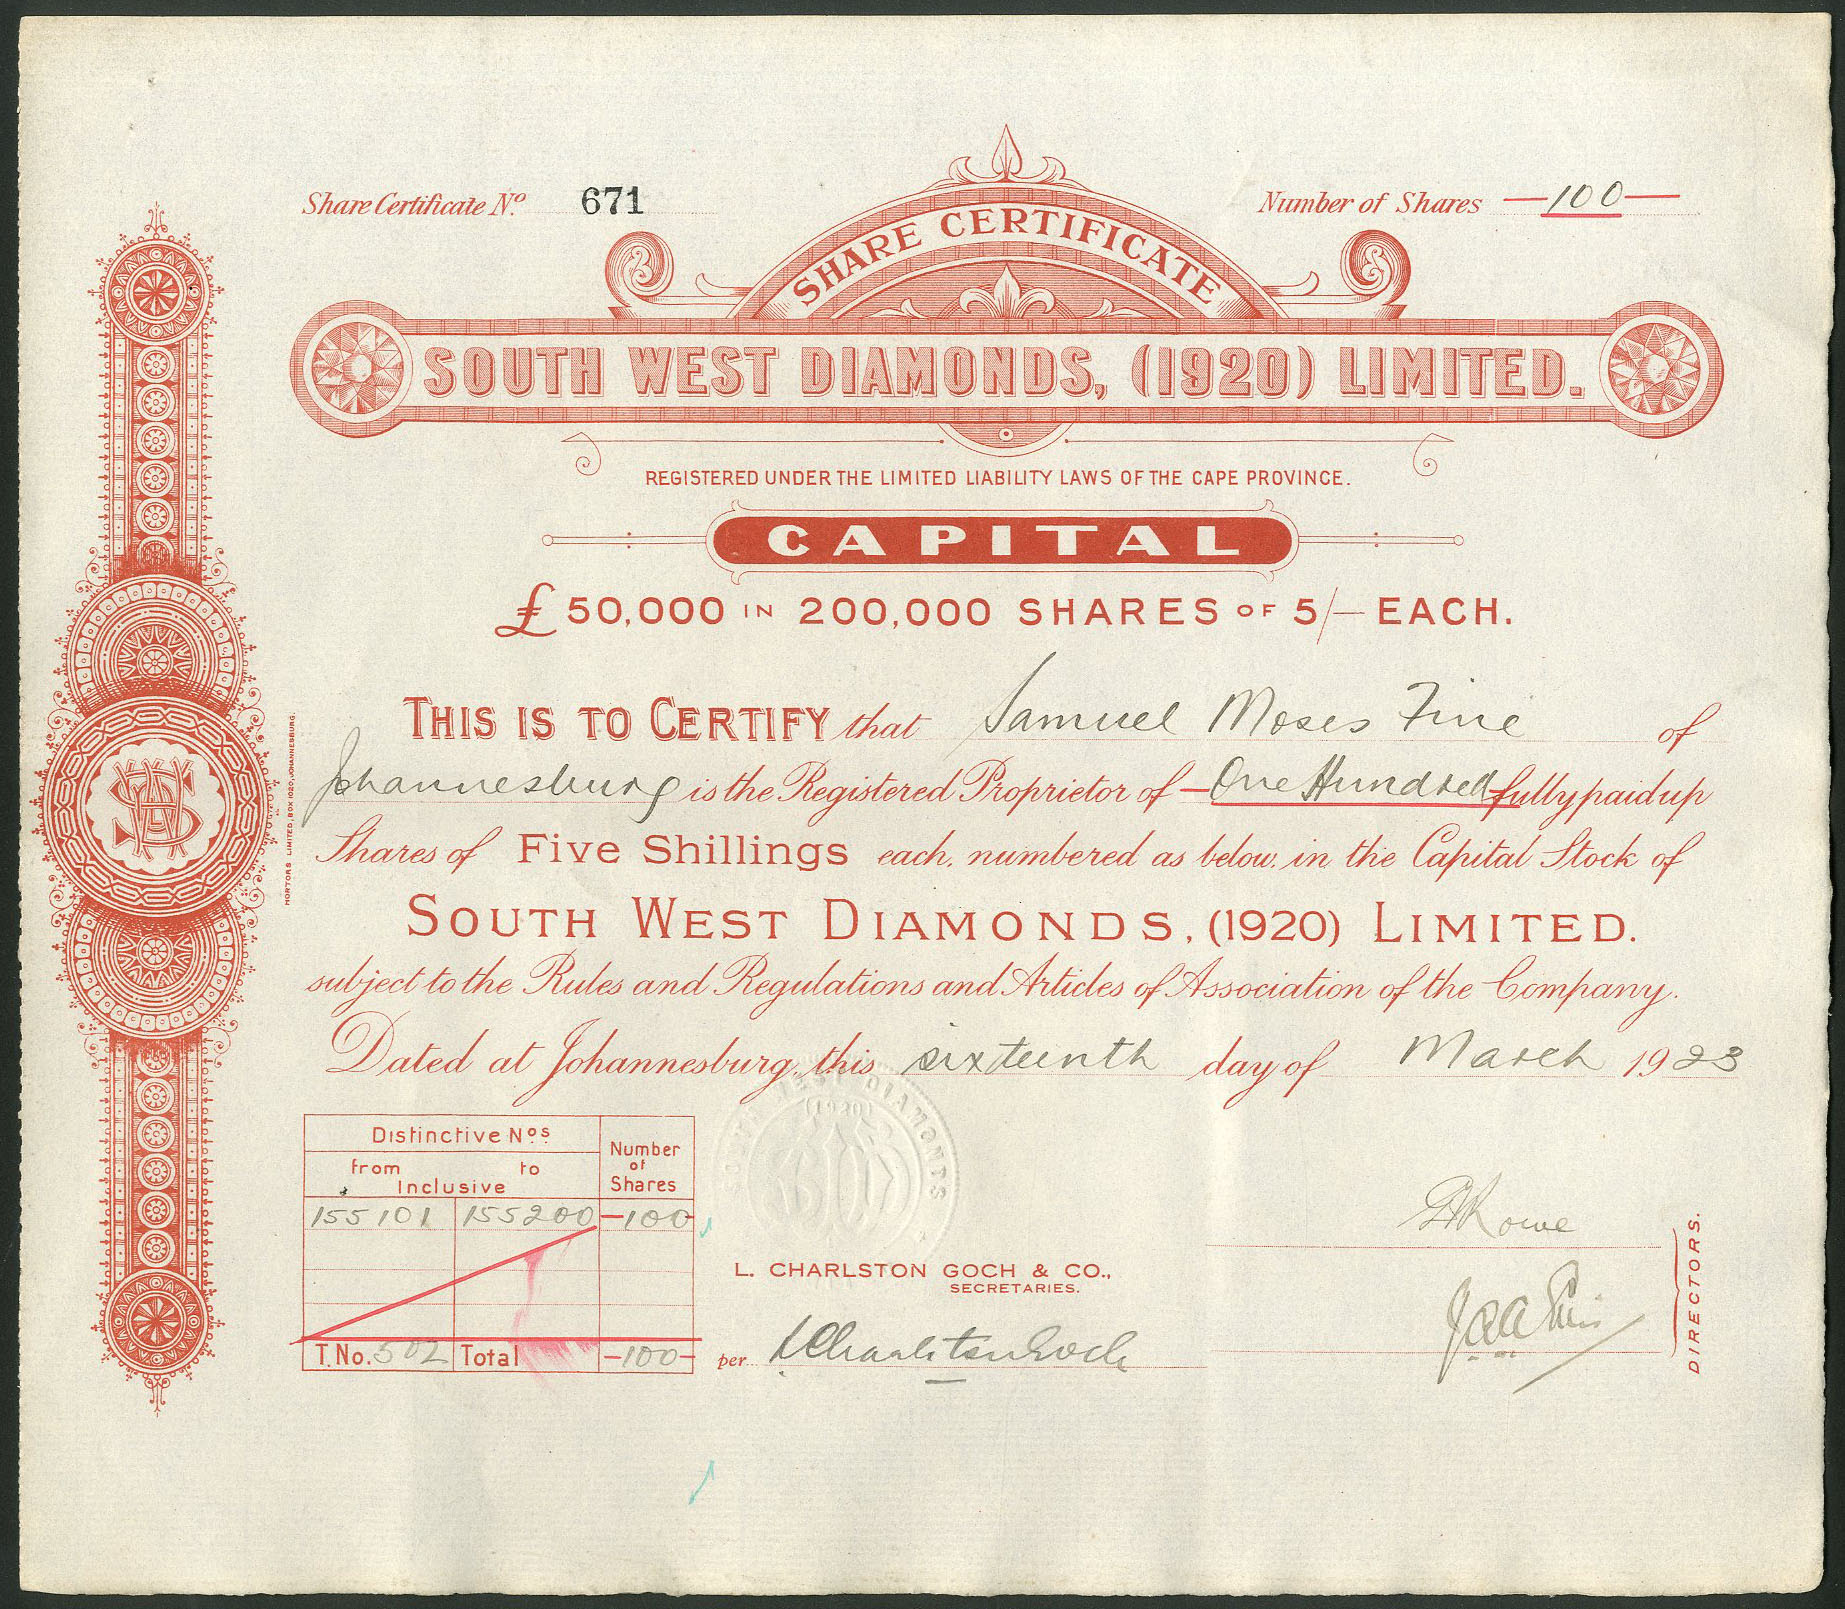 Share Certificate No. 671
Number of Shares —100—
SHARE CERTIFICATE
SOUTH WEST DIAMONDS, (1920) LIMITED.
REGISTERED UNDER THE LIMITED LIABILITY LAWS OF THE CAPE PROVINCE.
CAPITAL
£50,000 IN 200,000 SHARES OF 5/— EACH.
THIS IS TO CERTIFY that Samuel Moses Fine of
Johannesburg is the Registered Proprietor of —One Hundred— fully paid up
Shares of Five Shillings each, numbered as below, in the Capital Stock of
SOUTH WEST DIAMONDS, (1920) LIMITED.
subject to the Rules and Regulations and Articles of Association of the Company.
Dated at Johannesburg, this sixteenth day of March 1923
HORTORS LIMITED, BOX 1020, JOHANNESBURG.
Distinctive Nos
from to
Inclusive
Number
of
Shares
155101 155200 —100—
T.No. 502 Total —100—
SOUTH WEST DIAMONDS
(1920)
L. CHARLSTON GOCH & CO.,
SECRETARIES.
per L Charlston Goch
Rowe
DIRECTORS.